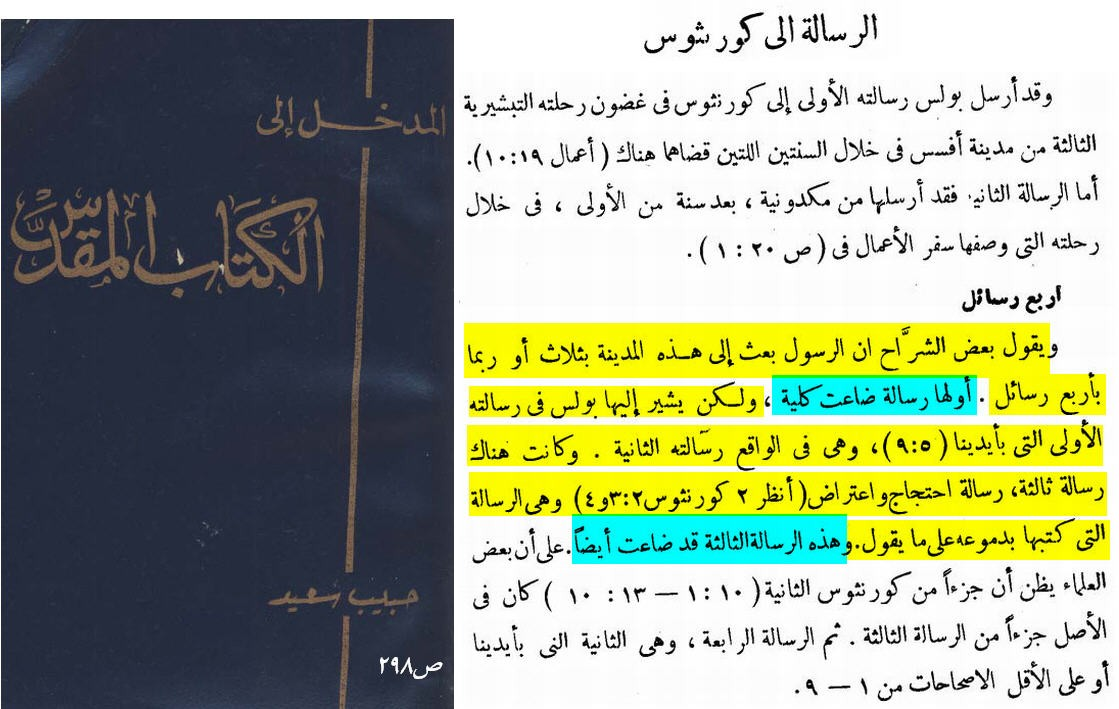 المدخل إلى
الكتاب المقدس
حبيب سعيد
ص٢٩٨
الرسالة الى كورنثوس
وقد أرسل بولس رسالته الأولى إلى كورنثوس فى غضون رحلته التبشيرية
الثالثة من مدينة أفسس فى خلال السنتين اللتين قضاهما هناك ( أعمال ١٩:١٠).
أما الرسالة الثانية فقد أرسلها من مكدونية ، بعد سنة من الأولى ، فى خلال
رحلته التى وصفها سفر الأعمال فى ( ص ٢٠ : ١ ) .
اربع رسائل
ويقول بعض الشرَّاح ان الرسول بعث إلى هـذه المدينة بثلاث أو ربما
بأربع رسائل . أولها رسالة ضاعت كلية ، ولـكن يشير إليها بولس فى رسالته
الأولى التى بأيدينا ( ٥:٩ ) ، وهى فى الواقع رسالته الثانية . وكانت هناك
رسالة ثالثة، رسالة احتجاج واعتراض ( أنظر ٢ كورنثوس ٢:٣و٤ ) وهى الرسالة
التى كتبها بدموعه على ما يقول. وهذه الرسالة الثالثة قد ضاعت أيضاً. على أن بعض
العلماء يظن أن جزءاً من كورنثوس الثانية ( ١٠:١ — ١٣ : ١٠ ) كان فى
الأصل جزءاً من الرسالة الثالثة . ثم الرسالة الرابعة ، وهى الثانية التى بأيدينا
أو على الأقل الاصحاحات من ١ — ٩ .